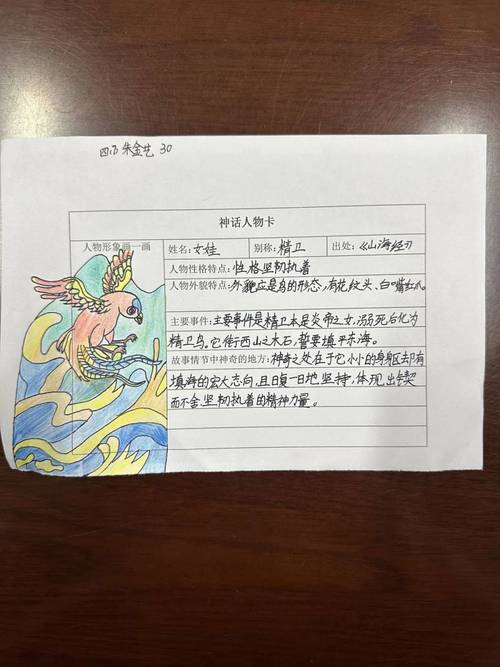 四 朱金艺 30
神话人物卡
人物形象画一画
姓名：女娃 别称：精卫 出处：《山海经》
人物性格特点：性格坚韧执着
人物外貌特点：外貌应是鸟的形态，有花纹头、白嘴红爪。
主要事件：主要事件是精卫本是炎帝之女，溺死后化为
精卫鸟，它衔西山之木石，誓要填平东海。
故事情节中神奇的地方：神奇之处在于它小小的身躯却有
填海的宏大志向，且日复一日地坚持，体现出锲
而不舍坚韧执着的精神力量。